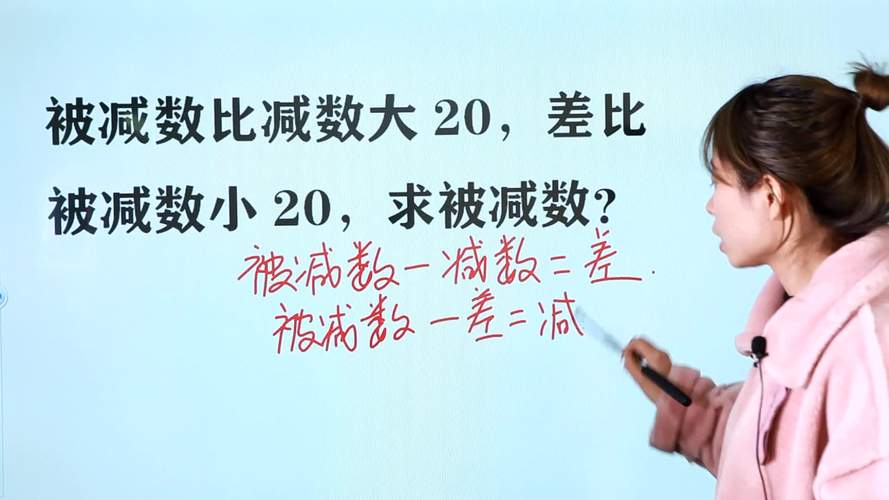 被减数比减数大 20，差比
被减数小 20，求被减数？
被减数－减数＝差.
被减数－差＝减